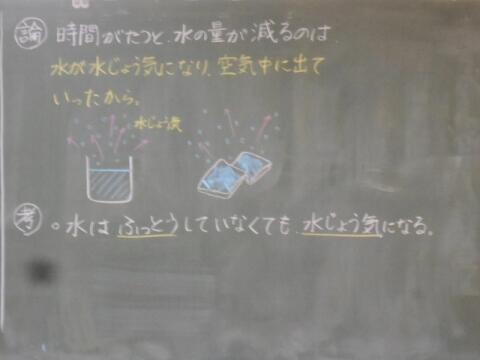 論 時間がたつと、水の量が減るのは
水が水じょう気になり、空気中に出て
いったから。
水じょう気
考 ○水は ふっとうしていなくても、水じょう気になる。